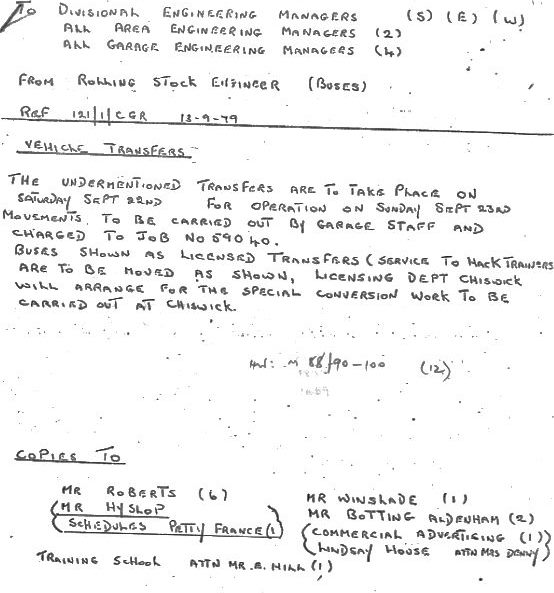 TO DIVISIONAL ENGINEERING MANAGERS (S) (E) (W)
ALL AREA ENGINEERING MANAGERS (2)
ALL GARAGE ENGINEERING MANAGERS (4)
FROM ROLLING STOCK ENGINEER (BUSES)
REF 121/1/CGR 13-9-79
VEHICLE TRANSFERS
THE UNDERMENTIONED TRANSFERS ARE TO TAKE PLACE ON
SATURDAY SEPT 22ND FOR OPERATION ON SUNDAY SEPT 23RD
MOVEMENTS TO BE CARRIED OUT BY GARAGE STAFF AND
CHARGED TO JOB NO 59040.
BUSES SHOWN AS LICENSED TRANSFERS (SERVICE TO HACK TRAINERS
ARE TO BE MOVED AS SHOWN, LICENSING DEPT CHISWICK
WILL ARRANGE FOR THE SPECIAL CONVERSION WORK TO BE
CARRIED OUT AT CHISWICK.
M 88/90-100 (12)
COPIES TO
MR ROBERTS (6)
MR HYSLOP
SCHEDULES PETTY FRANCE (1)
TRAINING SCHOOL ATTN MR. E. HILL (1)
MR WINSLADE (1)
MR BOTTING ALDENHAM (2)
COMMERCIAL ADVERTISING (1)
LINDSAY HOUSE ATTN MRS DENNY